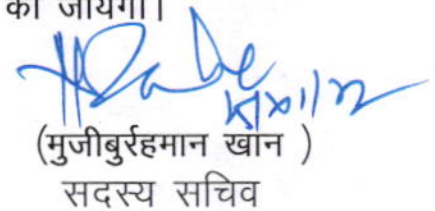 की जायेगी।
(मुजीबुर्रहमान खान )
सदस्य सचिव